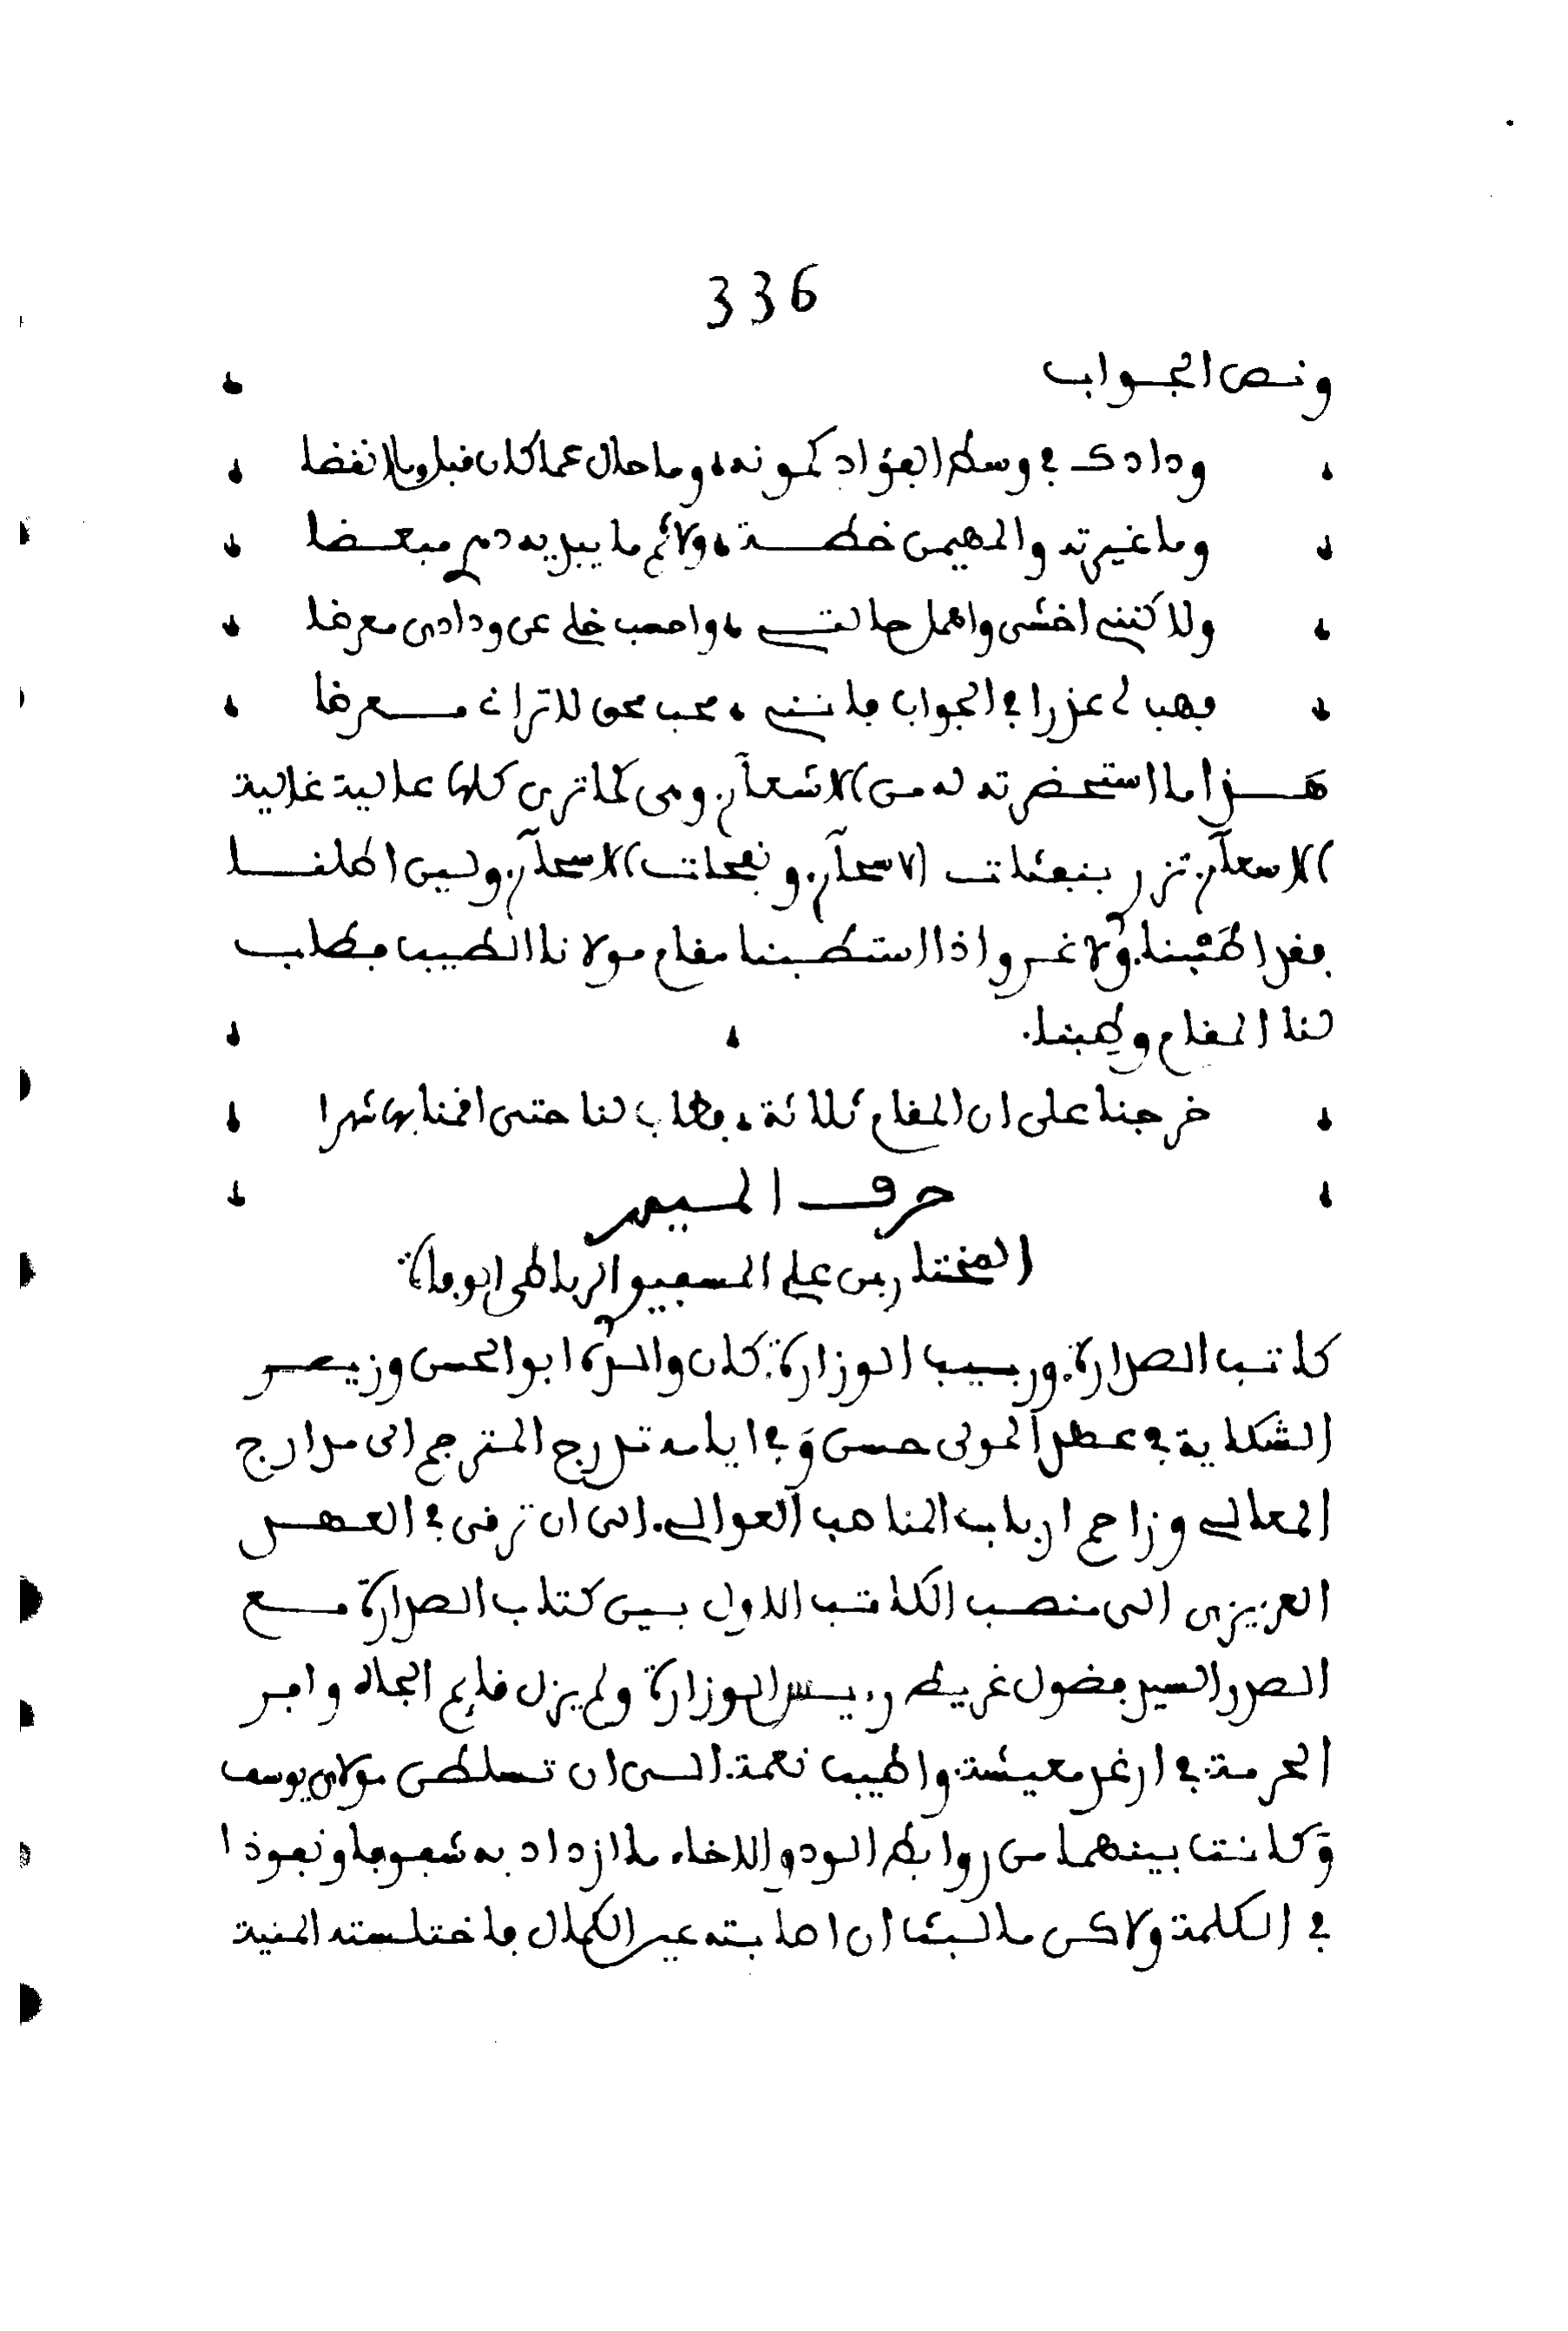 336
ونص الجواب
ودادك في وسط الفؤاد كمونه، وما حال عما كان قبل وما انقضا
وما غيرته والمهيمن خطة، ولا ثم ما يبديه دهر مبعضا
ولاكنني اخشى واهمل حالتي، واحسب خلي عن ودادي معرضا
فهب لي عذرا في الجواب فانني، محب محق للتراث معرضا
هذا ما استحضرته له من الاشعار. وهي كما ترى كلها عالية غالية
الاسعار. تزر بنفثات الاسحار. ونفحات الاسحار. ولين اطلنا
فقد اطبنا. ولا غرو اذا استطبنا مقام مولانا الطيب فطاب
لنا المقام وطبنا.
خرجنا على ان المقام ثلاثة، فطاب لنا حتى اقمنا بها شهرا
حرف الميم
(المختار بن علي المسفيو الرباطي ابو فاة)
كاتب الصدارة. وربيب الوزارة. كان والده ابو الحسن وزير
الشكاية في عهد المولى حسن وفي ايامه تدرج المترجم الى مدارج
المعالي وزاحم ارباب المناصب العوالي. الى ان ترقى في العهد
العزيزي الى منصب الكاتب الاول بين كتاب الصدارة مع
الصدر السيد فضول غريط رءيس الوزارة ولم يزل قايم الجاه وافر
الحرمة. في ارغد معيشة. واطيب نعمة. الى ان تسلطن مولاي يوسف
وكانت بينهما من روابط الود والاخاء ما ازداد به شفوفا ونفوذا
في الكلمة ولاكن ما لبث ان اصابته عين الكمال فاختلسته المنية